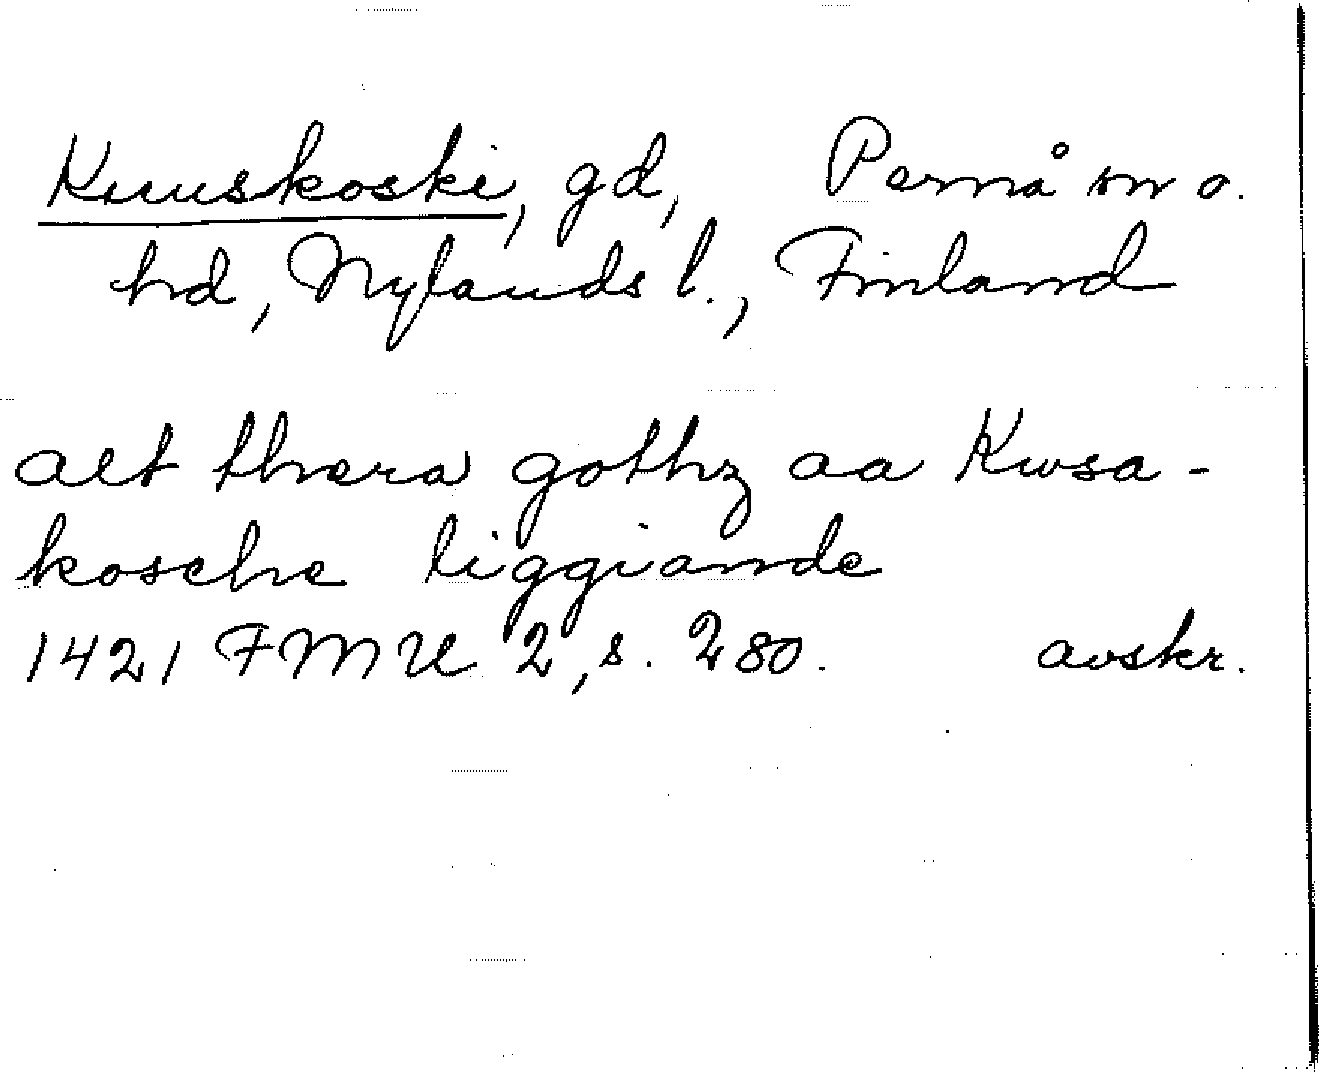 Kuuskoski, gd, Pernå sn o.
hd, Nylands l., Finland
alt thera gothz aa Kwsa-
kosche liggiande
1421 FMU 2, s. 280. avskr.